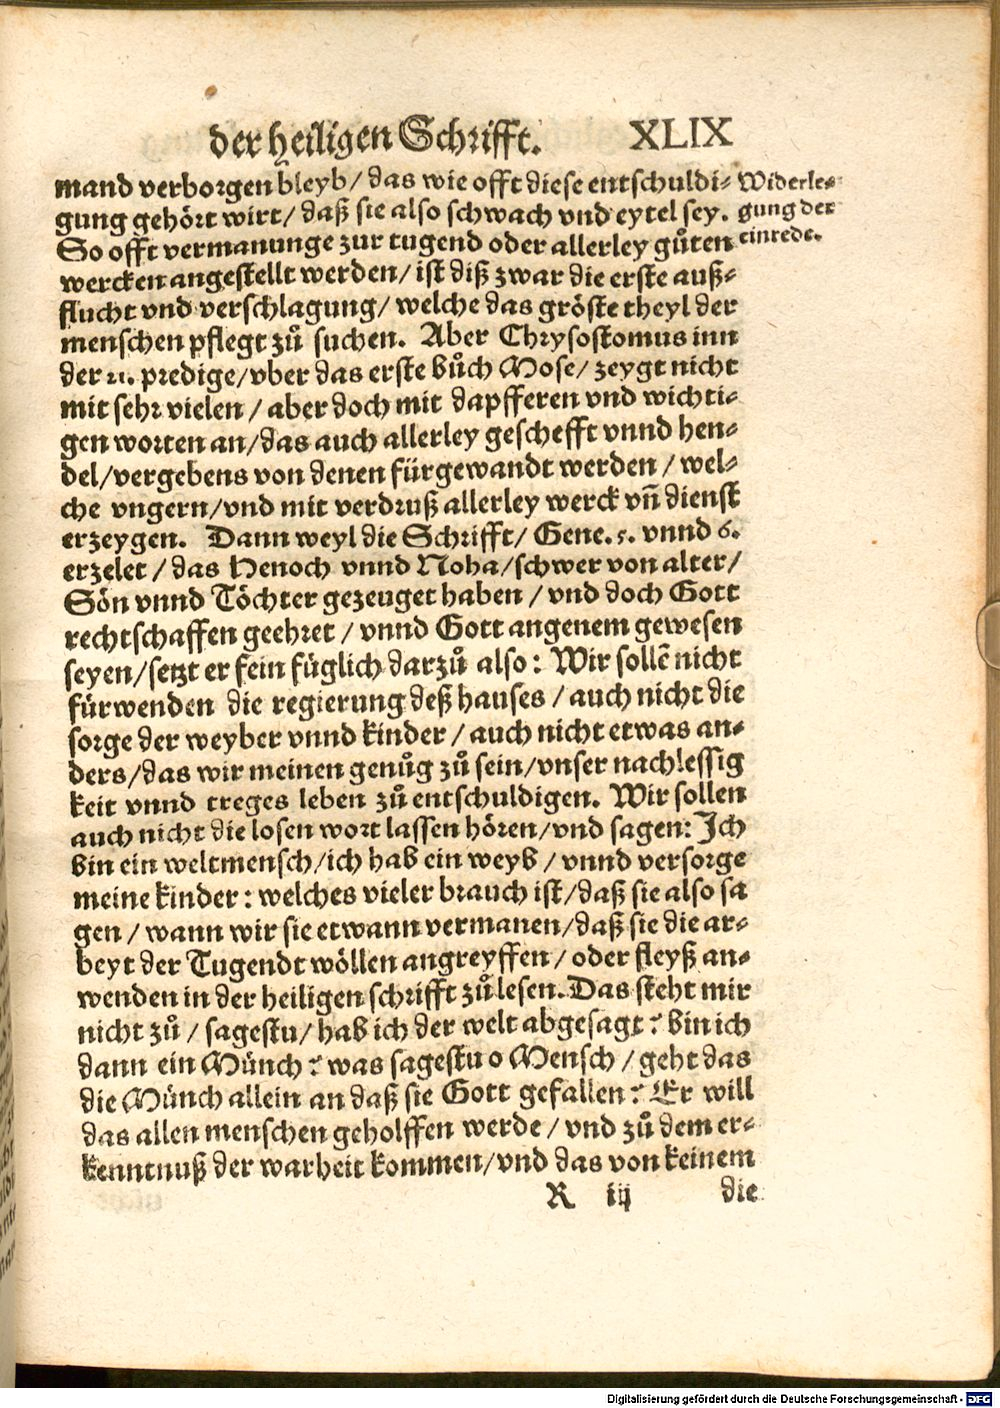 der heiligen Schrifft. XLIX
mand verborgen bleyb/ das wie offt diese entschuldi-
gung gehört wirt/ daß sie also schwach vnd eytel sey.
So offt vermanunge zur tugend oder allerley gůten
wercken angestellt werden/ ist diß zwar die erste auß-
flucht vnd verschlagung/ welche das gröste theyl der
menschen pflegt zů suchen. Aber Chrysostomus inn
der 21. predige/vber das erste bůch Mose/ zeygt nicht
mit sehr vielen / aber doch mit dapfferen vnd wichti-
gen worten an/das auch allerley geschefft vnnd hen-
del/vergebens von denen fürgewandt werden / wel-
che vngern/vnd mit verdruß allerley werck vn̄ dienst
erzeygen. Dann weyl die Schrifft/ Gene. 5. vnnd 6.
erzelet / das Henoch vnnd Noha/schwer von alter/
Sön vnnd Töchter gezeuget haben / vnd doch Gott
rechtschaffen geehret / vnnd Gott angenem gewesen
seyen/setzt er fein füglich darzů also: Wir sollē nicht
fürwenden die regierung deß hauses / auch nicht die
sorge der weyber vnnd kinder / auch nicht etwas an-
ders/das wir meinen genůg zů sein/vnser nachlessig
keit vnnd treges leben zů entschuldigen. Wir sollen
auch nicht die losen wort lassen hören/vnd sagen: Ich
bin ein weltmensch/ich hab ein weyb / vnnd versorge
meine kinder: welches vieler brauch ist/daß sie also sa
gen / wann wir sie etwann vermanen/daß sie die ar-
beyt der Tugendt wöllen angreyffen / oder fleyß an-
wenden in der heiligen schrifft zů lesen. Das steht mir
nicht zů / sagestu/ hab ich der welt abgesagt? bin ich
dann ein Münch? was sagestu o Mensch / geht das
die Münch allein an daß sie Gott gefallen? Er will
das allen menschen geholffen werde / vnd zů dem er-
kenntnuß der warheit kommen/vnd das von keinem
R iij die
Widerle-
gung der
einrede.
Digitalisierung gefördert durch die Deutsche Forschungsgemeinschaft - DFG